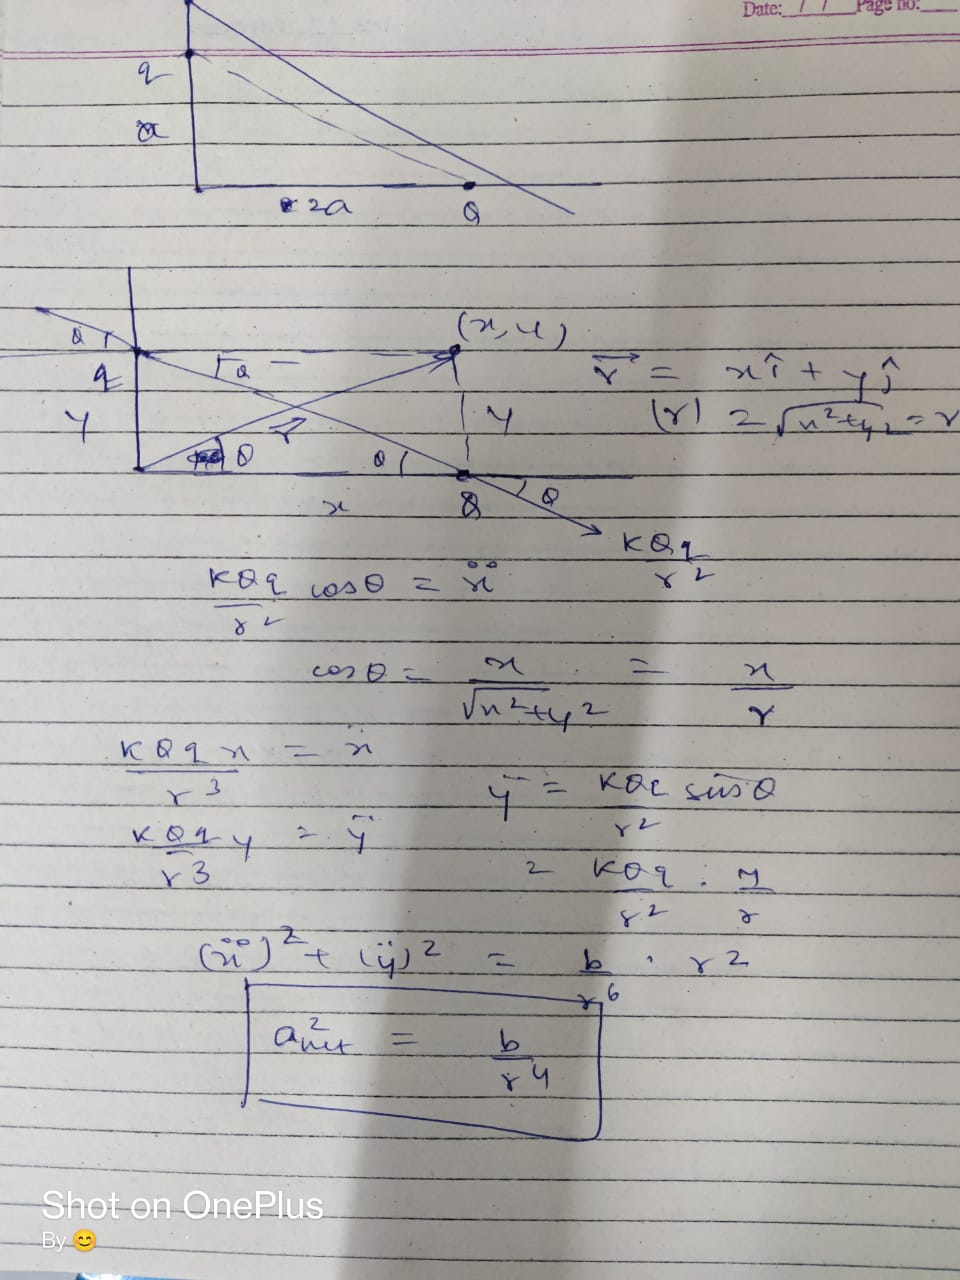 Date: / / Page no:
q
a
2a
Q
(x, y)
θ
θ
q
y
r⃗
θ
θ
y
x
Q
θ
r⃗ = xî + yĵ
(r) = √x²+y² = r
KQq/r²
KQq/r² cosθ = ẍ
cosθ = x/√x²+y² = x/r
KQqx/r³ = ẍ
ÿ = KQq/r² sinθ
KQq/r³ y = ÿ
= KQq/r² . y/r
(ẍ)² + (ÿ)² = b/r⁶ . r²
a²net = b/r⁴
Shot on OnePlus
By 😊